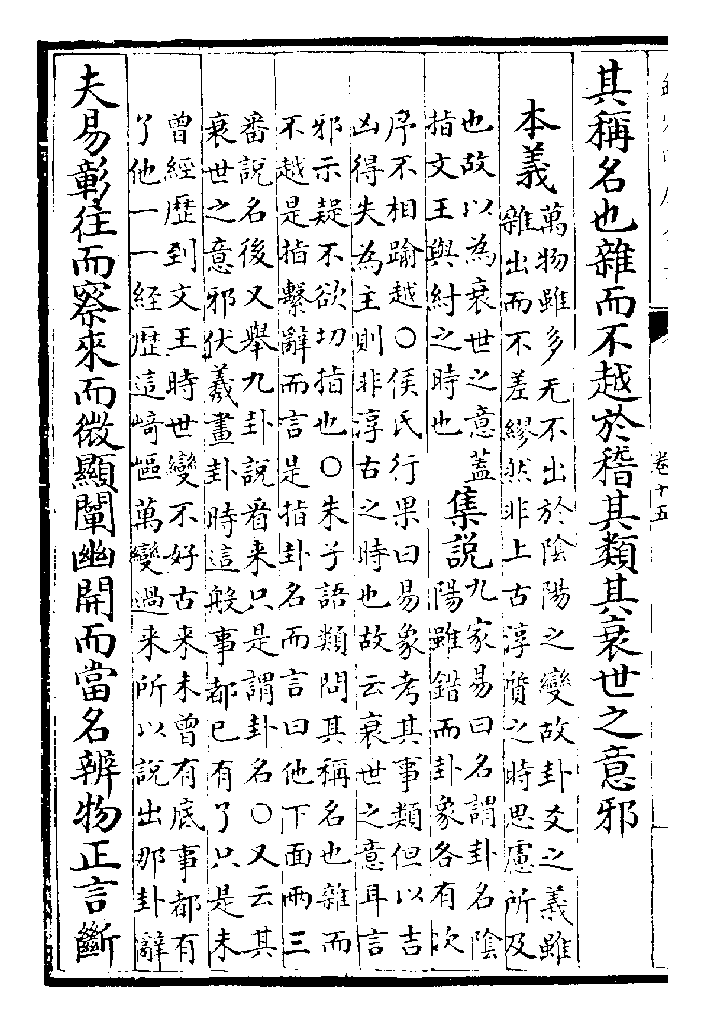 卷十五
其稱名也雜而不越於稽其類其衰世之意邪
本義
萬物雖多无不出於陰陽之變故卦爻之義雖
雜出而不差繆然非上古淳質之時思慮所及
也故以為衰世之意蓋
指文王與紂之時也
集說
九家易曰名謂卦名陰
陽雖錯而卦象各有次
序不相踰越○侯氏行果曰易象考其事類但以吉
凶得失為主則非淳古之時也故云衰世之意耳言
邪示疑不欲切指也○朱子語類問其稱名也雜而
不越是指繫辭而言是指卦名而言曰他下面兩三
番說名後又舉九卦說看来只是謂卦名○又云其
衰世之意邪伏羲畫卦時這般事都已有了只是未
曾經歷到文王時世變不好古来未曾有底事都有
了他一一經歷這崎嶇萬變過来所以說出那卦辭
夫易彰往而察來而微顯闡幽開而當名辨物正言斷